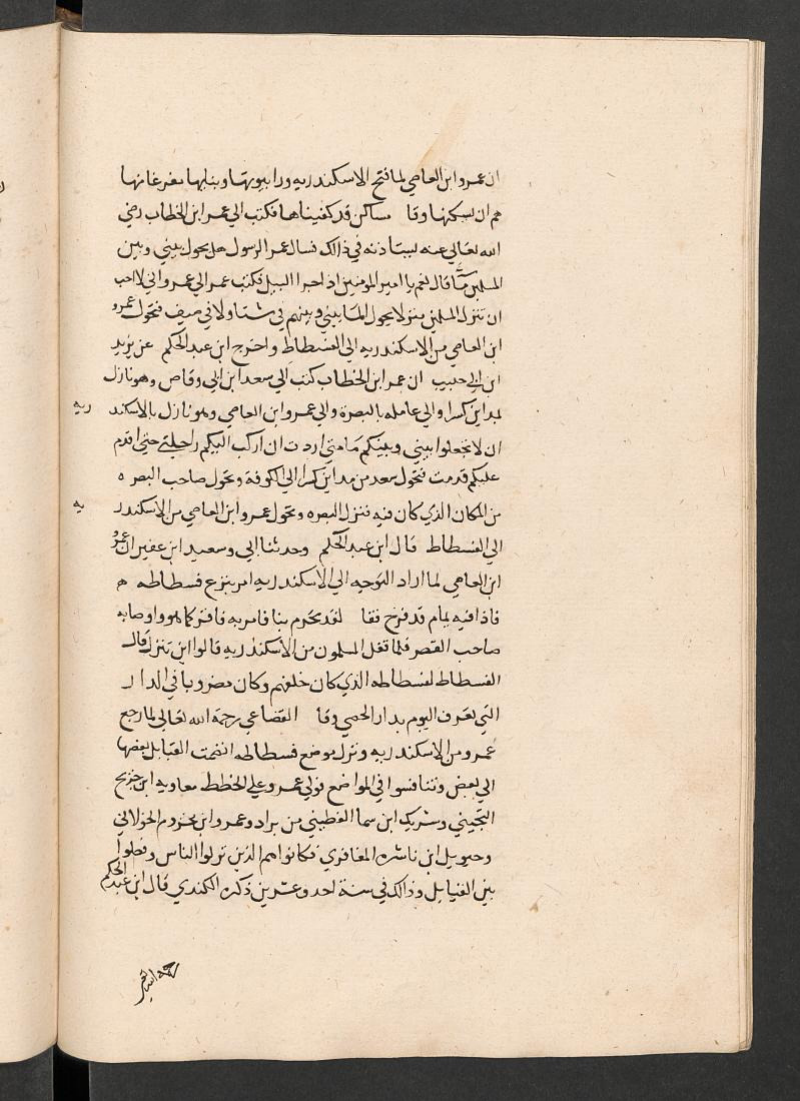 ان عمرو ابن العاصي لما فتح الاسكندريه ورا بيوتها وبنايها مفرغا منها
هم ان يسكنها وقا مساكن قد كفيناها فكتب الي عمر ابن الخطاب رضي
الله تعالي عنه ليستاذنه في ذالك فسال عمر الرسول هل يحول بيني وبين
المسلمين مآ قال نعم يا امير المومنين اذا جرا النيل فكتب عمر الي عمرو اني لا احب
ان تنزل المسلمين منزلا يحول الما بيني وبينهم في شتا ولا في صيف فتحول عمرو
ابن العاصي من الاسكندريه الي الفسطاط واخرج ابن عبد الحكم عن يزيد
ابن ابي حبيب ان عمر ابن الخطاب كتب الي سعد ابن ابي وقاص وهو نازل
بمداين كسرا والي عامله بالبصرة والي عمرو ابن العاصي وهو نازل بالاسكند ريه
ان لا تجعلوا بيني وبينكم ما متي اردت ان اركب اليكم راحلتي حتي اقدم
عليكم قدمت فتحول سعد من مداين كسرا الي الكوفة وتحول صاحب البصر ه
من المكان الذي كان فيه فنزل البصره وتحول عمرو ابن العاصي من الاسكندر يه
الي الفسطاط قال ابن عبد الحكم وحدثنا ابي وسعيد ابن عفير ان عمرو
ابن العاصي لما اراد التوجيه الي الاسكندريه امر بنزع فسطاطه ه
فاذا فيه يمام قد فرخ فقا لقد تحرم بنا فامر به فاقر كما هو واوصا به
صاحب القصر فلما قفل المسلمون من الاسكندريه قالوا اين تنزل قال
الفسطاط لفسطاطه الذي كان خلفهم وكان مضروبا في الدا ر
التي تعرف اليوم بدار الحصي وقا القضاعي رحمة الله تعالي لما رجع
عمرو من الاسكندريه ونزل موضع فسطاطه انضمت القبايل بعضها
الي بعض وتنافسوا في المواضع فولي عمرو علي الخطط معاويه ابن خديج
التجيبي وشريك ابن سما الغطيفي من براد وعمرو ابن مخزوم الخولاني
وحيويل ابن ناشره المغافري فكانوا هم الذين نزلوا الناس وفصلوا
بين القبايل وذالك في سنة احد وعشرين ذكره الكندي قال ابن عبد الحكم
رحمه الله